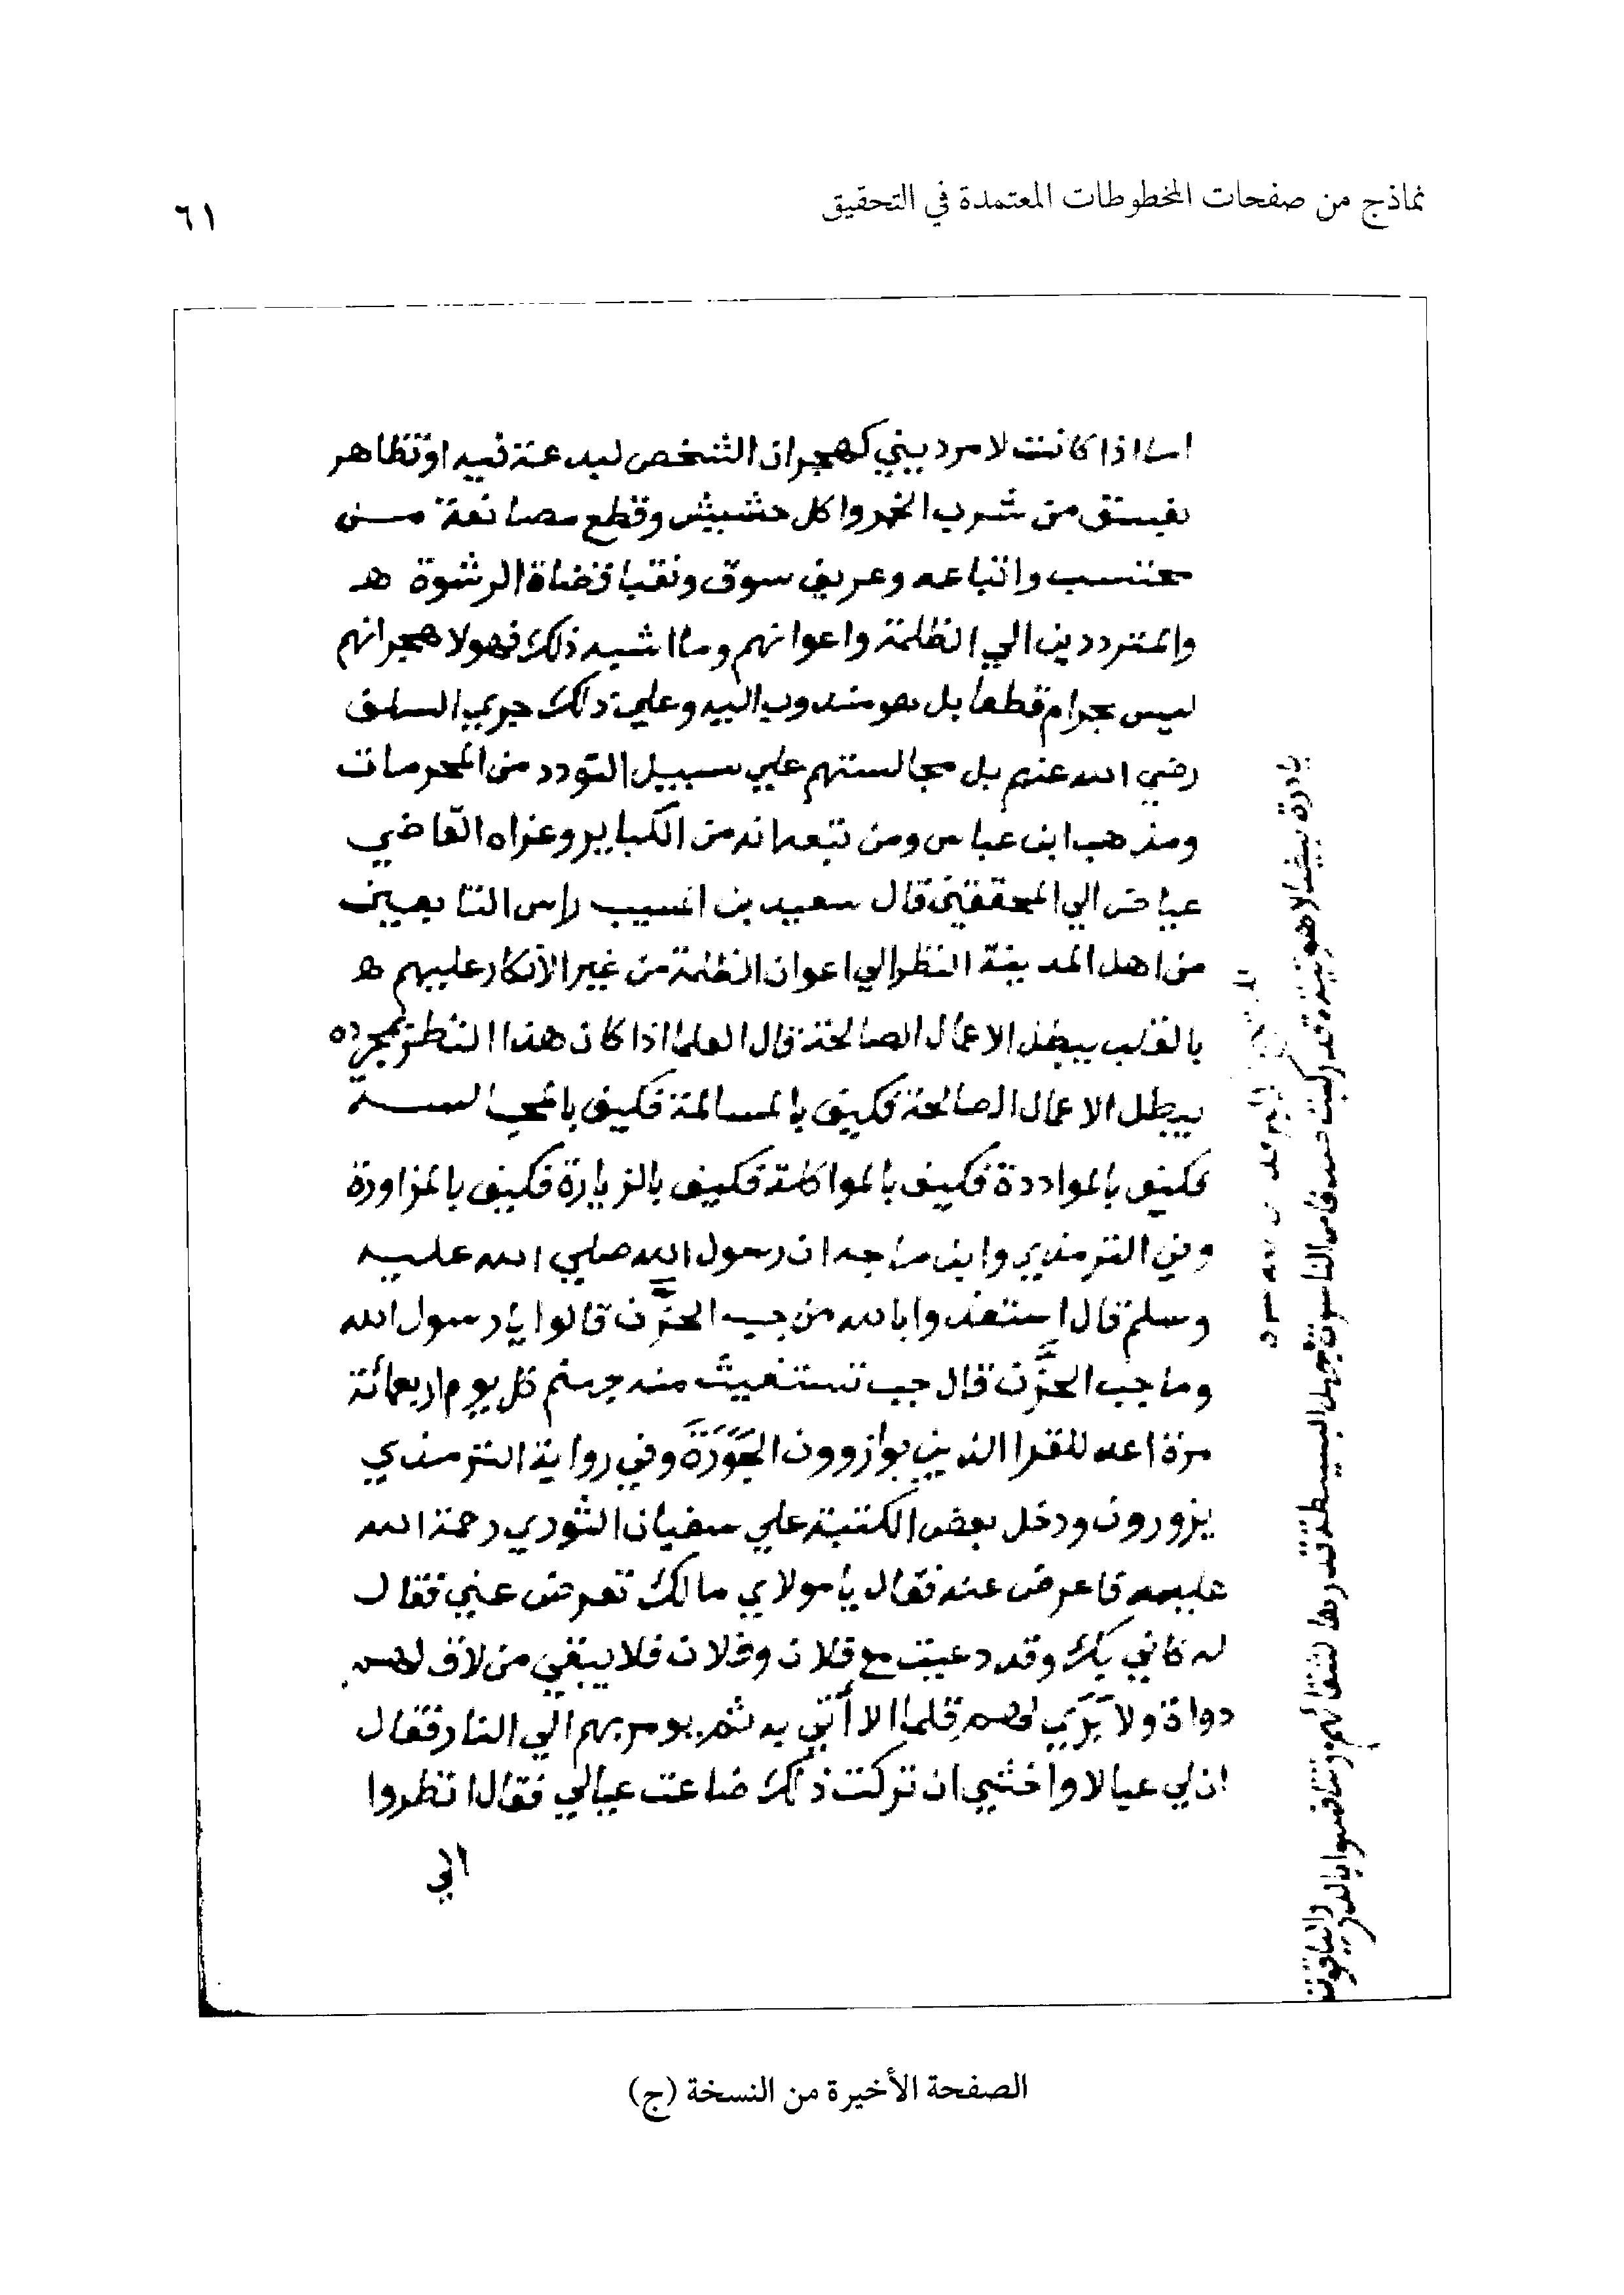 نماذج من صفحات المخطوطات المعتمدة في التحقيق
٦١
اما اذا كانت لامر ديني كهجران الشخص لبدعة فيه او تظاهر
بفسق من شرب الخمر واكل حشيش وقطع مصانعة مـن
محتسب واتباعه وعريف سوق ونقبا قضاة الرشوة هـ
والمترددين الي الظلمة واعوانهم وما اشبه ذلك فهولا هجرانهم
ليس بحرام قطعا بل هو مندوب اليه وعلي ذلك جري السلف
رضي الله عنهم بل مجالستهم علي سبيل التودد من المحرمات
ومذهب ابن عباس ومن تبعه انه من الكباير وعزاه القاضي
عياض الي المحققين قال سعيد بن المسيب راس التابعين
من اهل المدينة النظر الي اعوان الظلمة من غير الانكار عليهم هـ
بالقلب يبطل الاعمال الصالحة قال العلما اذا كان هذا النظر بمجرده
يبطل الاعمال الصالحة فكيف بالمسالمة فكيف بالمجالسة
فكيف بالمواددة فكيف بالمواكلة فكيف بالزيارة فكيف بالمزاورة
وفي الترمذي وابن ماجه ان رسول الله صلي الله عليه
وسلم قال استعذوا بالله من جب الحزن قالوا يا رسول الله
وما جب الحزن قال جب تستغيث منه جهنم كل يوم اربعمائة
مرة اعد للقرا الذين يوازوون الجَوَرَةَ وفي رواية الترمذي
يزورون ودخل بعض الكتبة علي سفيان الثوري رحمة الله
عليه فاعرض عنه فقال يا مولاي مالك تعرض عني فقال
له كاني بك وقد دعيت مع فلان وفلان فلا يبقي من لاق لهم
دواة ولا بَرَي لهم قلما الا أتي به ثم يومر بهم الي النار فقال
ان لي عيالا واخشي ان تركت ذلك ضاعت عيالي فقال انظروا
الي
الصفحة الأخيرة من النسخة (ج)